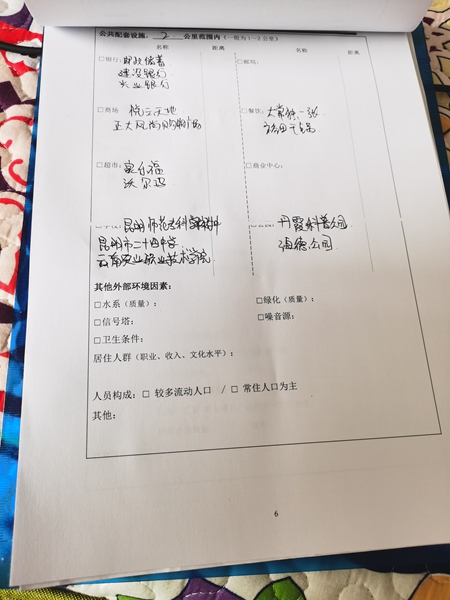 公共配套设施: 2 公里范围内（一般为1~3公里）
名称 距离 名称 距离
□银行: 邮政储蓄 □邮局:
建设银行
兴业银行
□商场 悦立天地 □餐饮: 大掌独一张
正大风尚购物广场
□超市: 家乐福 □商业中心:
沃尔玛
昆明师范专科学校附中 丹霞科普公园
昆明市二十四中学 海德公园
云南农业职业技术学院
其他外部环境因素:
□水系（质量）: □绿化（质量）:
□信号塔: □噪音源:
□卫生条件:
居住人群（职业、收入、文化水平）:
人员构成: □ 较多流动人口 / □ 常住人口为主
其他:
6